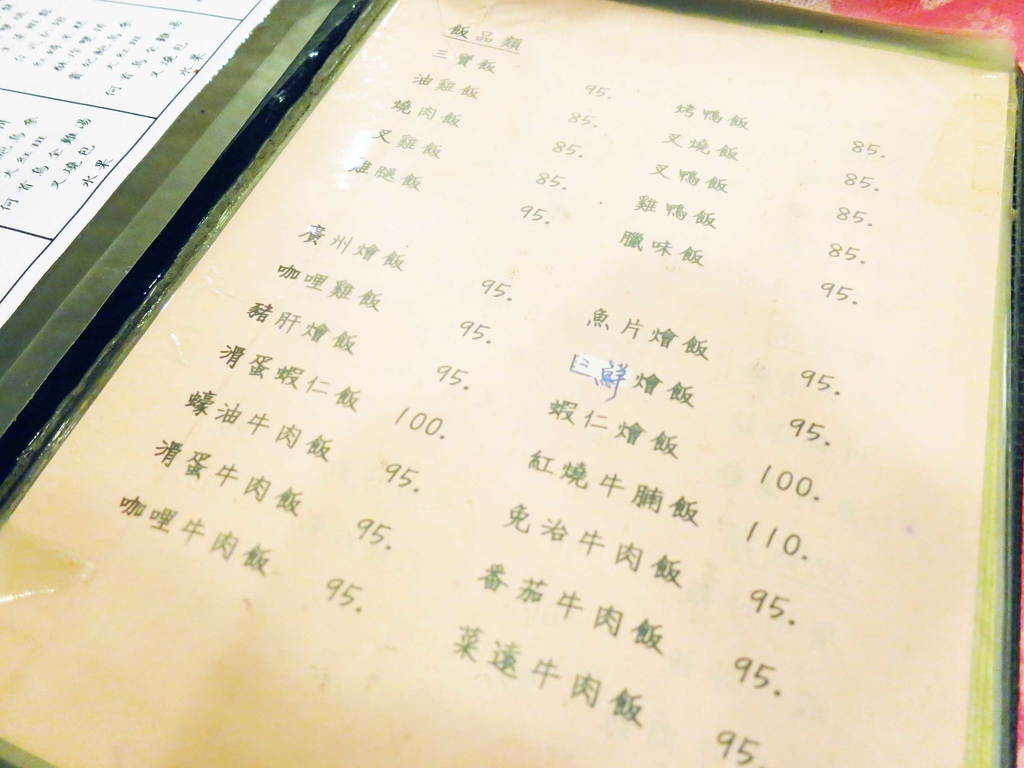 飯品類
三寶飯 95.
油雞飯 85.
燒肉飯 85.
叉雞飯 85.
雞腿飯 95.
廣州燴飯 95.
咖哩雞飯 95.
豬肝燴飯 95.
滑蛋蝦仁飯 100.
蠔油牛肉飯 95.
滑蛋牛肉飯 95.
咖哩牛肉飯 95.
烤鴨飯 85.
叉燒飯 85.
叉鴨飯 85.
雞鴨飯 85.
臘味飯 95.
魚片燴飯 95.
三鮮燴飯 95.
蝦仁燴飯 100.
紅燒牛腩飯 110.
免治牛肉飯 95.
番茄牛肉飯 95.
菜遠牛肉飯 95.
何首烏全雞湯
叉燒包
水果